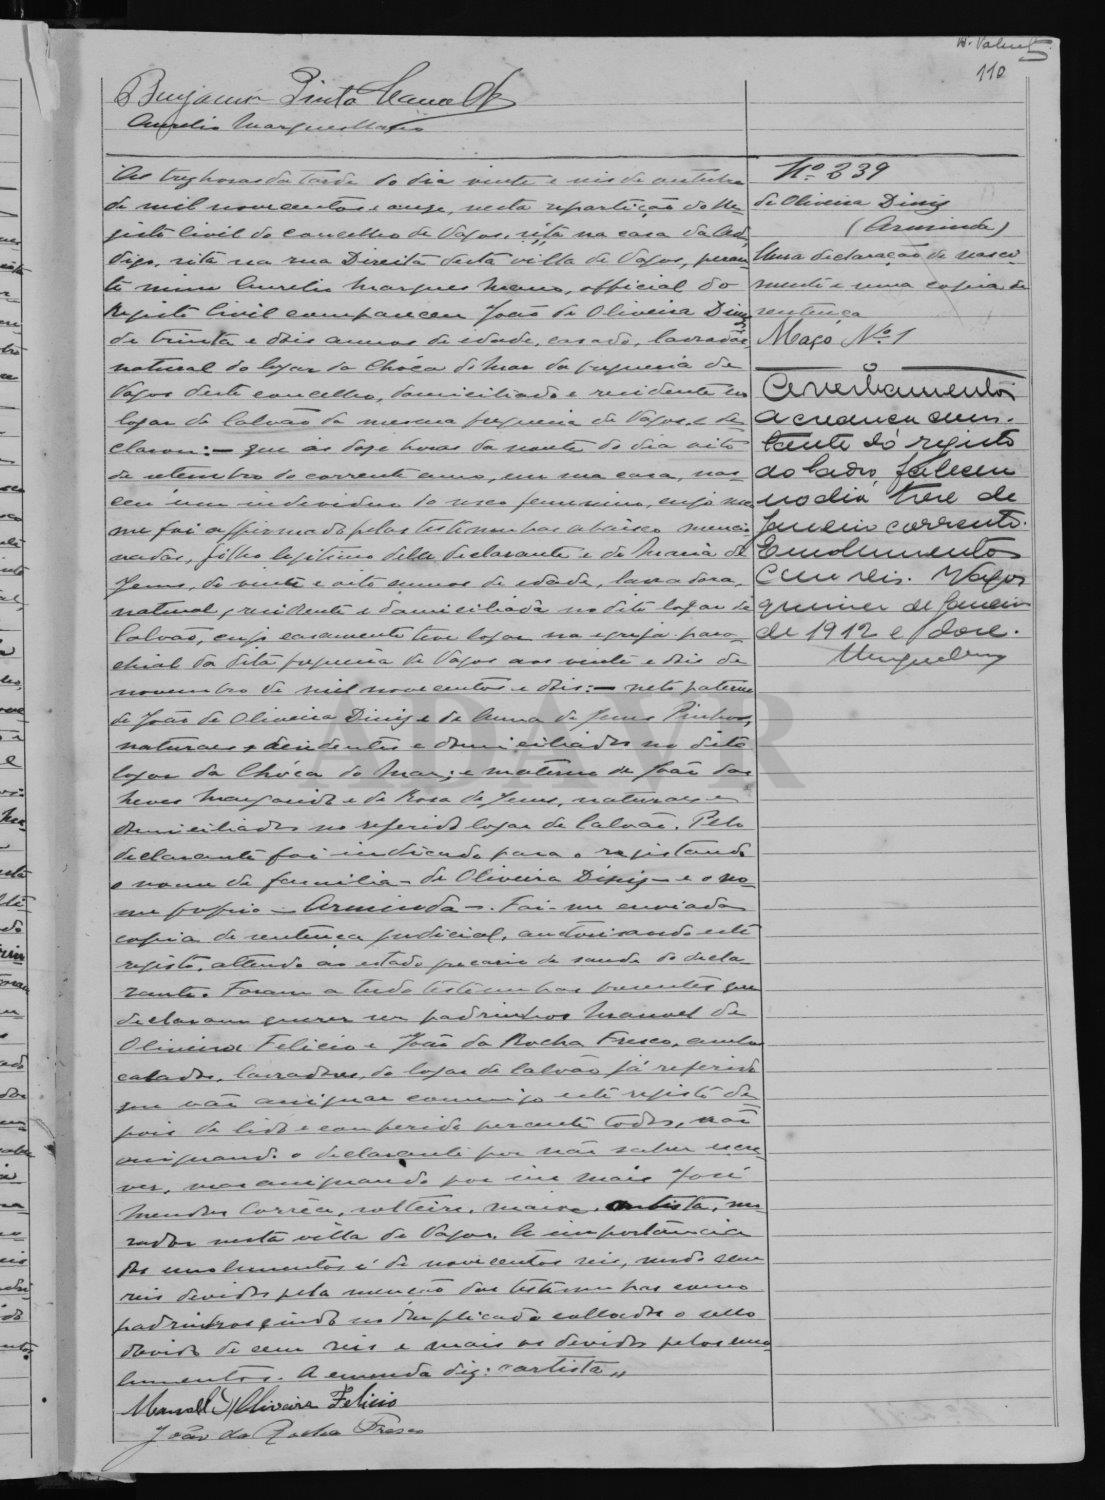 110
Benjamin Pinto
Aurelio Marques
As tres horas da tarde do dia vinte e seis de outubro
de mil novecentos e onze, nesta repartição do Re-
gisto Civil do concelho de Vagos, sita na casa
sita na rua Direita desta villa de Vagos, peran-
te mim Aurelio Marques Mano, official do
Registo Civil compareceu João de Oliveira Diniz
de trinta e dois annos de edade, casado, lavrador,
natural do logar da Chóca do Mar da freguezia de
Vagos deste concelho, domiciliado e residente no
logar de Calvão da mesma freguezia de Vagos, e de-
clarou: — que ás doze horas da noute do dia oito
de setembro do corrente anno, em sua casa, nas-
ceu um individuo do sexo feminino, cujo
me foi affirmado pelas testemunhas abaixo mencio-
nadas, filho legitimo delle declarante e de Maria de
Jesus, de vinte e oito annos de edade, lavradora,
natural, residente e domiciliada no dito logar de
Calvão, cujo casamento teve logar na egreja paro-
chial da dita freguezia de Vagos aos vinte e dois de
novembro de mil novecentos e dois: — neto paterno
de João de Oliveira Diniz e de Anna de Jesus Pinhos,
naturaes, residentes e domiciliados no dito
logar da Chóca do Mar; e materno de João das
Neves Margarido e de Rosa de Jesus, naturaes e
domiciliados no referido logar de Calvão. Pelo
declarante foi indicado para o registando
o nome de familia — de Oliveira Diniz — e o no-
me proprio — Arminda —. Foi-me enviada
copia de sentença judicial, auctorisando este
registo, attendo ao estado precario de saude do decla-
rante. Foram a tudo testemunhas presentes que
declaram querer ser padrinhos Manoel de
Oliveira Felicio e João da Rocha Fresco, ambos
casados, lavradores, do logar de Calvão já referido
que vão assignar commigo este registo de-
pois de lido e conferido perante todos, não
assignando o declarante por não saber escre-
ver, mas assignando por elle mais José
Mendes Corrêa, solteiro, maior, artista, mo-
rador nesta villa de Vagos. A importancia
dos emolumentos é de novecentos reis, sendo cem
reis devidos pela menção das testemunhas como
padrinhos, indo no duplicado collados o sello
devido de cem reis e mais os devidos pelos emo-
lumentos. A emenda diz: "artista"
Manoel d'Oliveira Felicio
João da Rocha Fresco
Nº 339
de Oliveira Diniz
(Arminda)
Uma declaração de nasci-
mento e uma copia de
sentença
Maço Nº 1
Averbamentos
A creança cons-
tante do registo
ao lado, faleceu
no dia treze de
Janeiro corrente.
Emolumentos
cem reis. Vagos
quinze de Janeiro
de 1912 e doze.
ADAVR